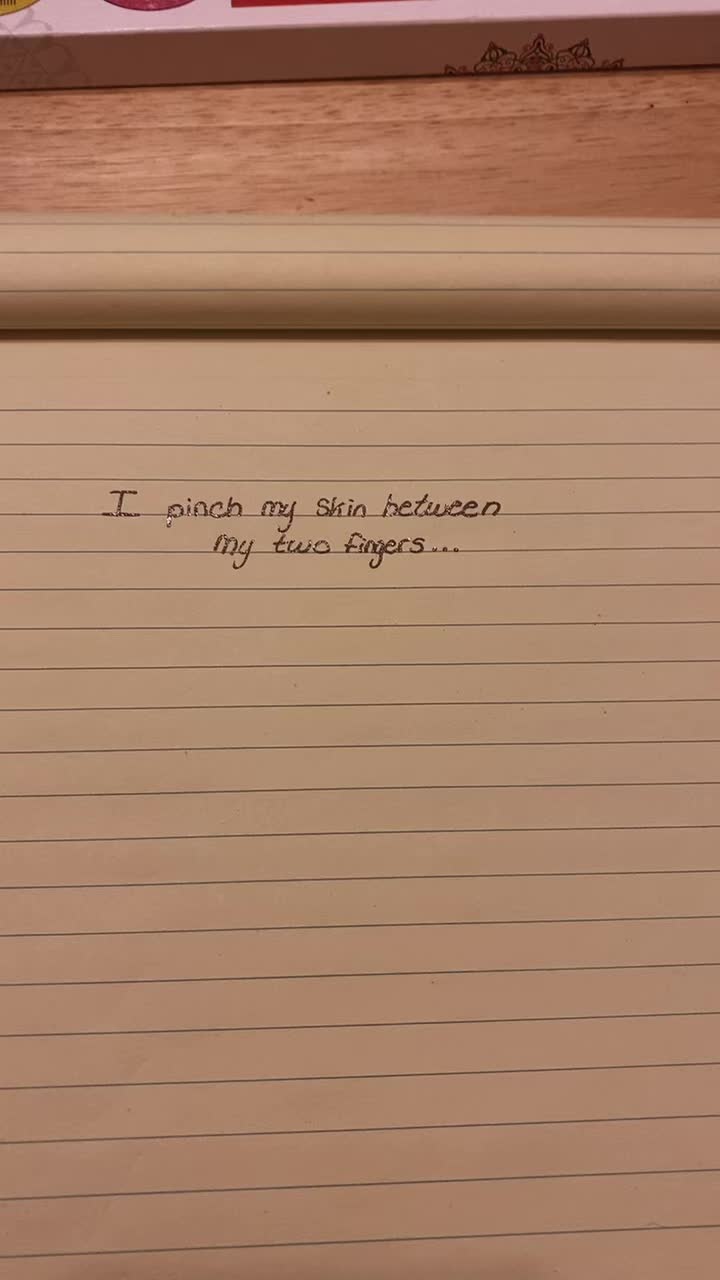 I pinch my skin between
my two fingers...